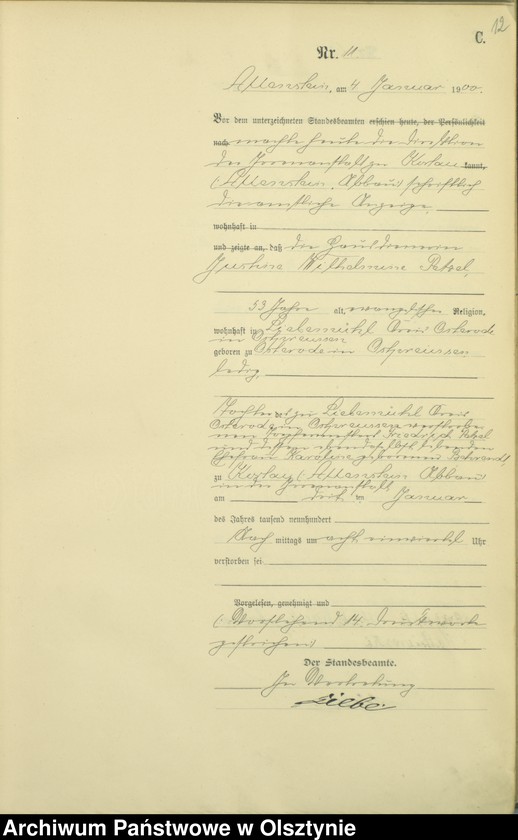 12
C.
Nr. 11
Allenstein, am 4 Januar 1900.
Vor dem unterzeichneten Standesbeamten erschien heute, der Persönlichkeit
nach machte heute die Direktion
der Irrenanstalt zu Kortau kannt,
(Allenstein, Abbau) schriftlich
dienamtliche Anzeige
wohnhaft in
und zeigte an, daß die
Justine Wilhelmine Petzel,
53 Jahre alt, evangelischer Religion,
wohnhaft in Liebemühl Kreis Osterode
in Ostpreussen
geboren zu Osterode in Ostpreussen
ledig,
Tochter des zu Liebemühl Kreis
Osterode in Ostpreussen verstorbenen
Friedrich Petzel
und dessen
Ehefrau Karoline geborenen
zu Kortau (Allenstein Abbau)
in der Irrenanstalt
am Januar
des Jahres tausend neunhundert
Nachmittags um acht einviertel Uhr
verstorben sei
Vorgelesen, genehmigt und
(Vorstehend 14 Druckworte
gestrichen)
Der Standesbeamte.
In Vertretung
Archiwum Państwowe w Olsztynie